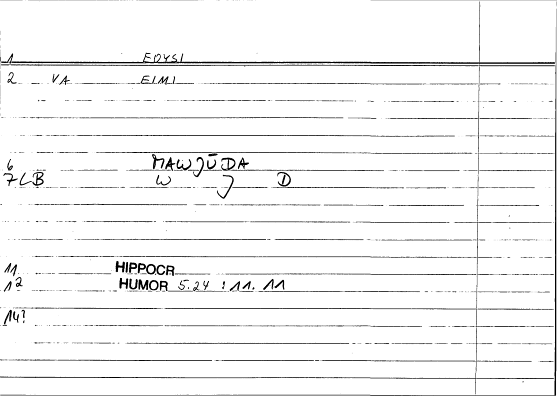 1 EDYSI
2 VA EIMI
6 MAWJŪDA
7 LB W J D
11 HIPPOCR
12 HUMOR 5.24 : 11. 11
14?